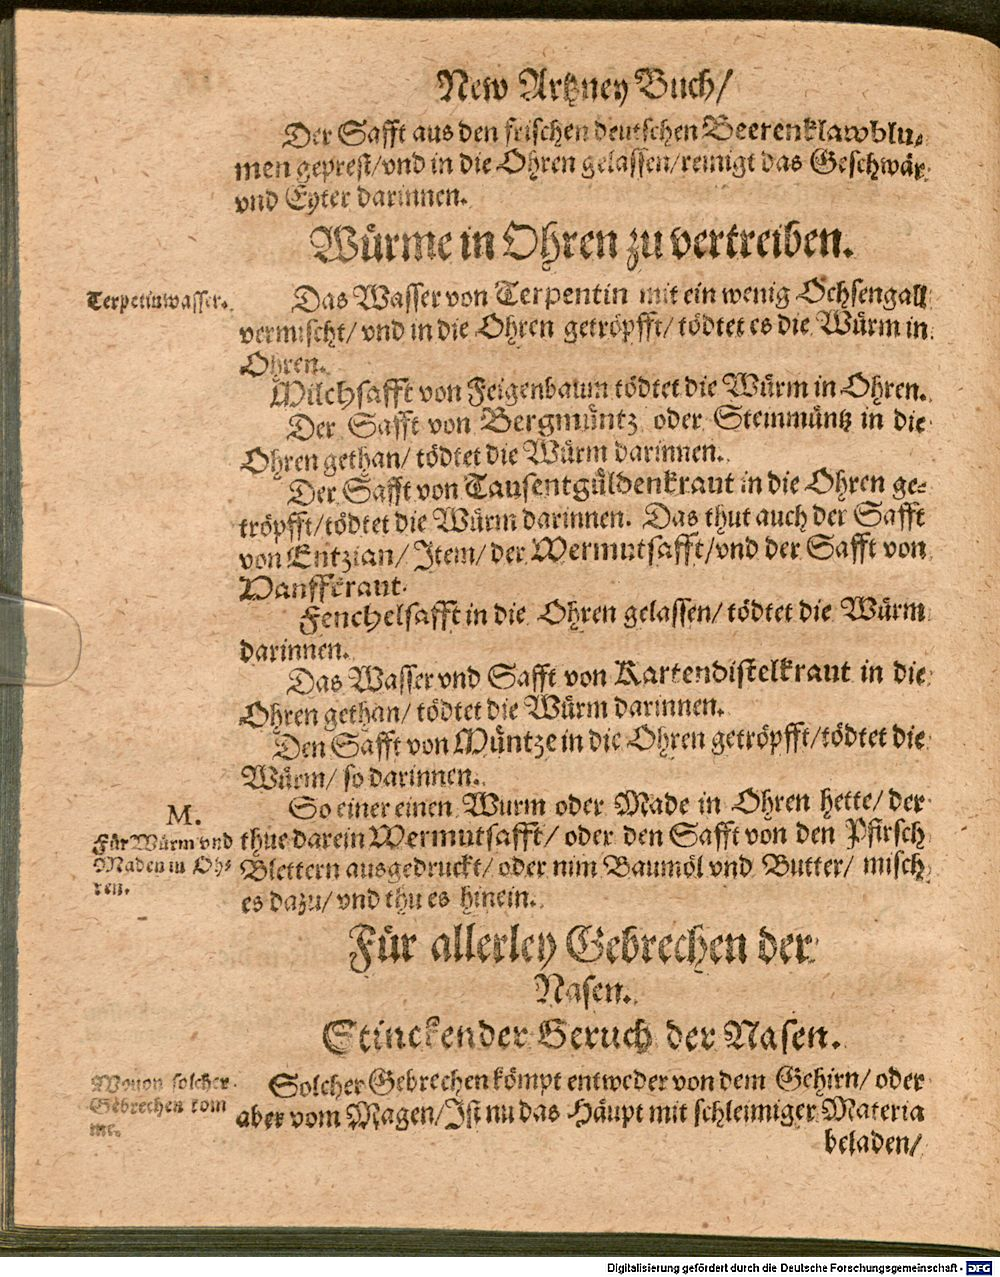 New Artzney Buch/
Der Safft aus den frischen deutschen Beerenklawblu⸗
men geprest/vnd in die Ohren gelassen/reinigt das Geschwär
vnd Eyter darinnen.
Würme in Ohren zu vertreiben.
Terpetinwasser.
Das Wasser von Terpentin mit ein wenig Ochsengall
vermischt/ vnd in die Ohren getröpfft/ tödtet es die Würm in
Ohren.
Milchsafft von Feigenbaum tödtet die Würm in Ohren.
Der Safft von Bergmüntz oder Steinmüntz in die
Ohren gethan/ tödtet die Würm darinnen.
Der Safft von Tausentgüldenkraut in die Ohren ge⸗
tröpfft/tödtet die Würm darinnen. Das thut auch der Safft
von Entzian/ Item/ der Wermutsafft/vnd der Safft von
Hanffkraut.
Fenchelsafft in die Ohren gelassen/ tödtet die Würm
darinnen.
Das Wasser vnd Safft von Kartendistelkraut in die
Ohren gethan/ tödtet die Würm darinnen.
Den Safft von Müntze in die Ohren getröpfft/tödtet die
Würm/ so darinnen.
M.
Für Würm vnd
Maden in Oh⸗
ren.
So einer einen Wurm oder Made in Ohren hette/ der
thue darein Wermutsafft/ oder den Safft von den Pfirsch
Blettern ausgedruckt/ oder nim Baumöl vnd Butter/ misch
es dazu/ vnd thu es hinein.
Für allerley Gebrechen der
Nasen.
Stinckender Geruch der Nasen.
Wouon solcher
Gebrechen kom
me.
Solcher Gebrechen kömpt entweder von dem Gehirn/ oder
aber vom Magen/Ist nu das Häupt mit schleimiger Materia
beladen/
Digitalisierung gefördert durch die Deutsche Forschungsgemeinschaft - DFG